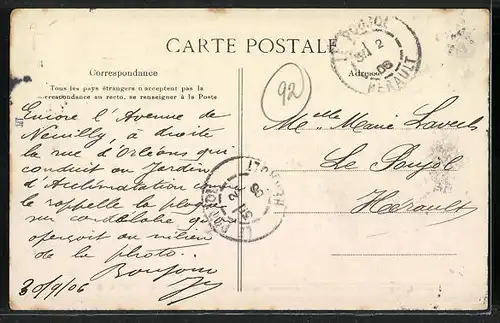 CARTE POSTALE
Correspondance
Tous les pays étrangers n'acceptent pas la
correspondance au recto, se renseigner à la Poste
Encore l'Avenue de
Neuilly, à droite
la rue d'Orléans qui
conduit au Jardin
d'Acclimatation
le rappelle la
sur candélabre
aperçoit au milieu
de la photo.
Bonjour
30/9/06
92
LE POUJOL
2
06
HERAULT
Adresse
Melle Marie
Le Poujol
Hérault
LE POUJOL
HERAULT